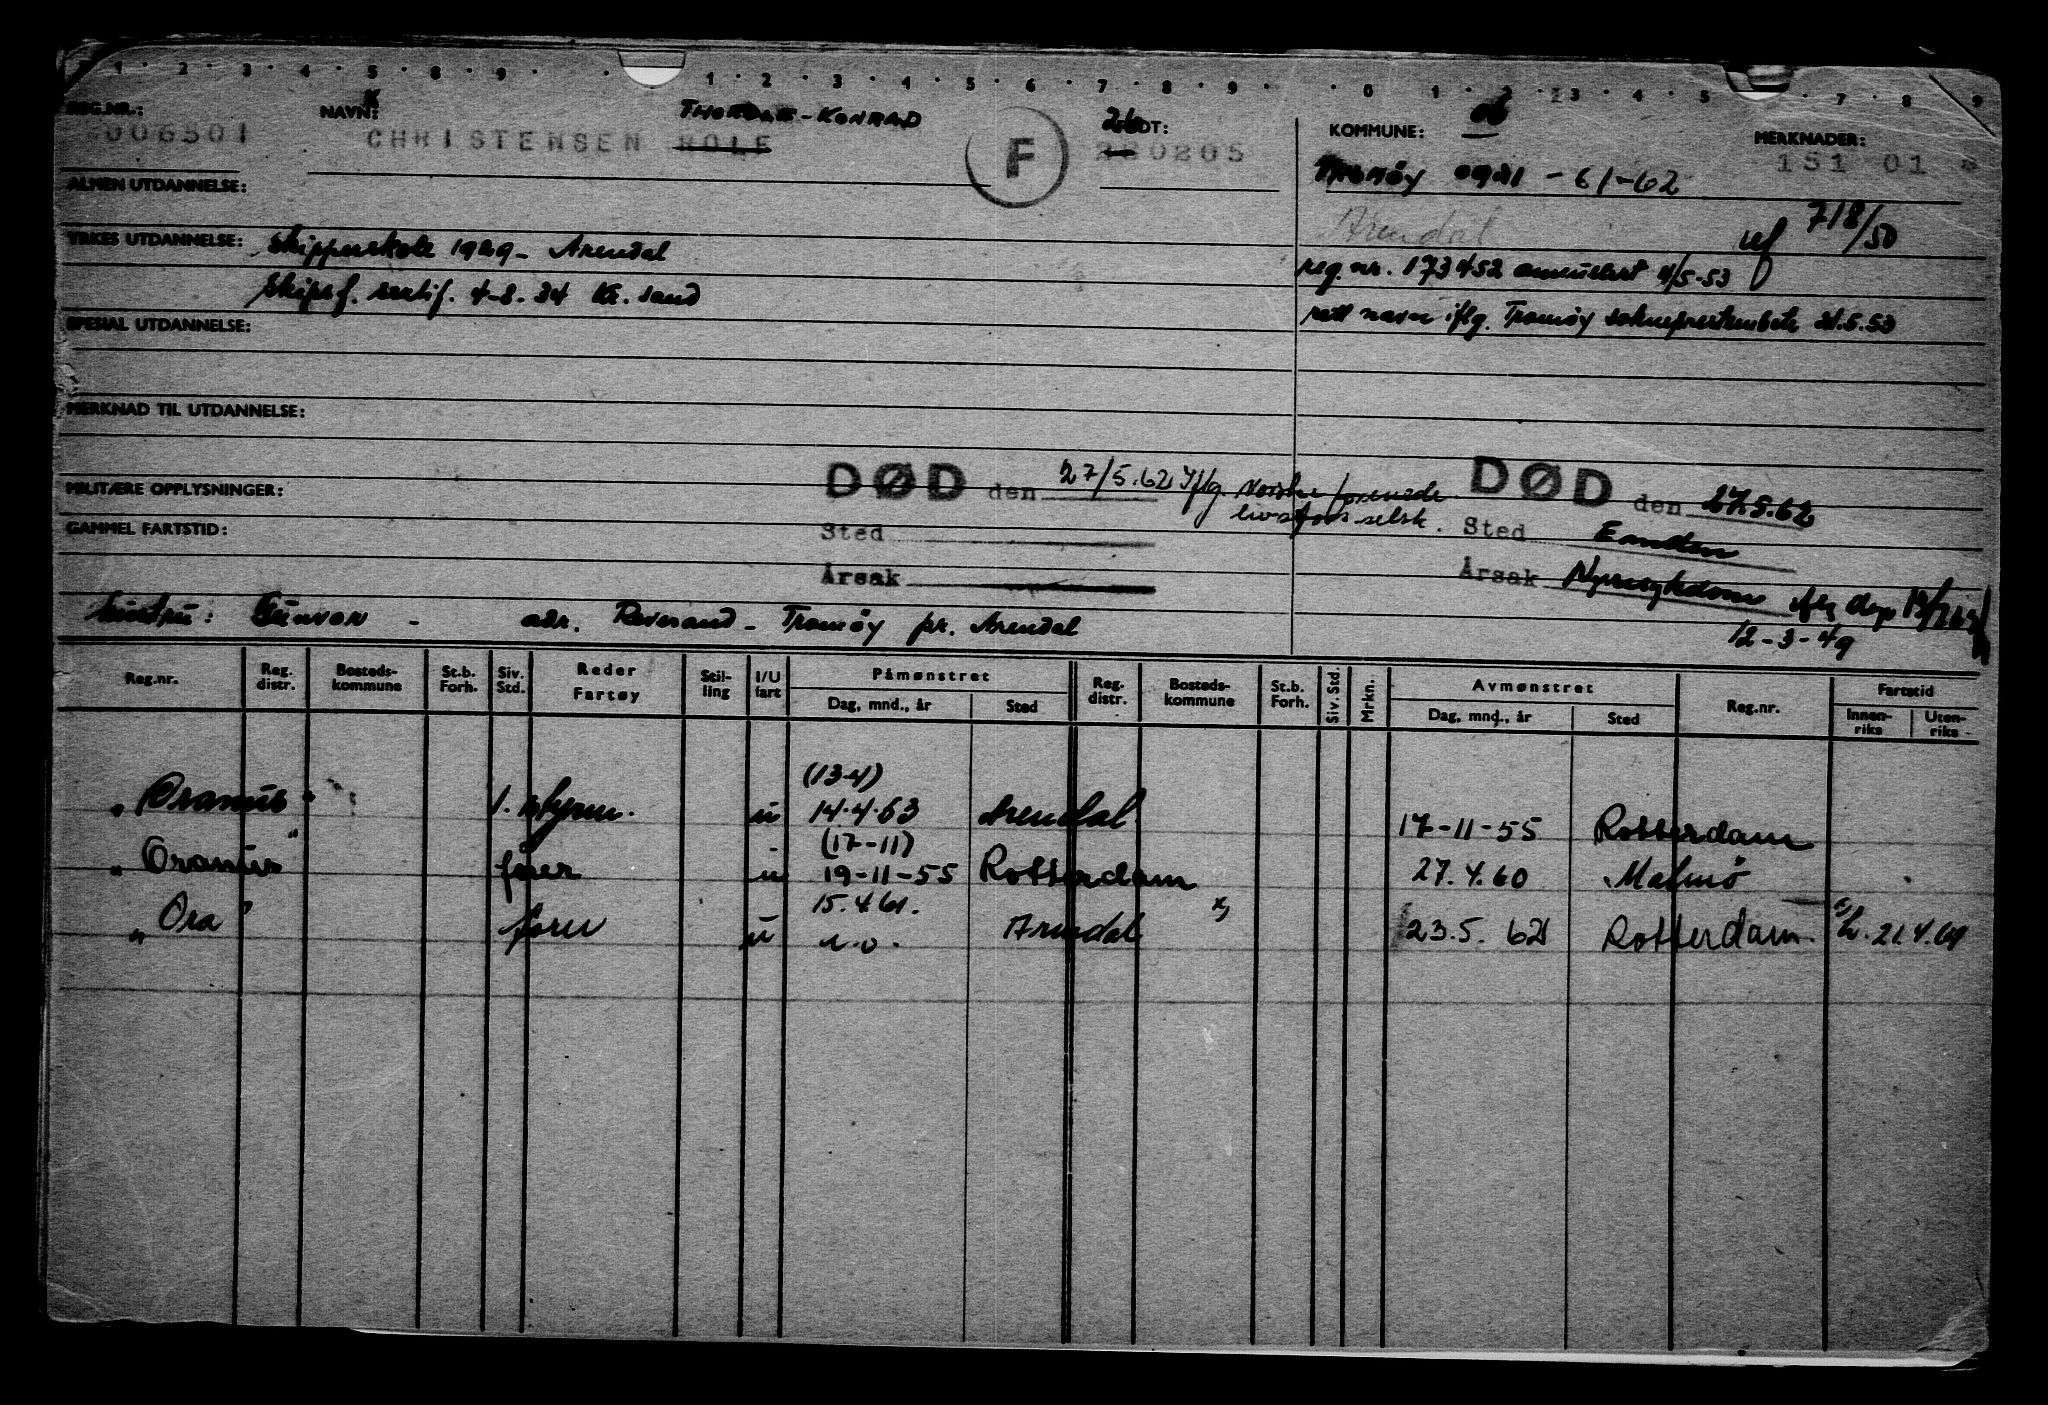 1 · 2 · 3 · 4 · 5 · 8 · 9 · · 1 · 2 · 3 · 4 · 5 · 6 · 7 · 8 · 9 · · 0 · 1 · 2 · 3 · 4 · 5 7 · 8 9
REG.NR.: NAVN: x THORLEIF-KONRAD 26 FØDT: KOMMUNE: MERKNADER:
006501 CHRISTENSEN ROLF F 230205 151 01
Tromøy 0921 - 61-62
ALMEN UTDANNELSE:
Arendal 718/50
YRKES UTDANNELSE: Skipperskole 1929 - Arendal
reg. nr. 173452 annullert 4/5-53
Skipsf. sertif. 4-8.34 Kr.sand
rett navn iflg. Tromøy sokneprestembete 21.5.53
SPESIAL UTDANNELSE:
MERKNAD TIL UTDANNELSE:
MILITÆRE OPPLYSNINGER: DØD den 27/5.62 Iflg. Norske forenede livsfors. selsk. DØD den 27.5.62
GAMMEL FARTSTID: Sted Sted Emden
Årsak Årsak Nyresykdom iflg dep
Hustru: Gunvor - adr. Revesand - Tromøy pr. Arendal 12-3-49
Reg.nr. Reg. distr. Bosteds-kommune St.b. Forh. Siv. Std. Reder Fartøy Stil-ling I/U fart Påmønstret Dag, mnd., år Sted Reg. distr. Bosteds-kommune St.b. Forh. Siv. Std. Mrkn. Avmønstret Dag, mnd., år Sted Reg.nr. Fartstid Innen-riks Uten-riks
(13-4)
"Oranus" 1. styrm. u 14.4.53 Arendal 17-11-55 Rotterdam
(17-11)
"Oranus" fører u 19-11-55 Rotterdam 27.4.60 Malmö
15.4.61.
"Ora" fører u n.o. Arendal x) 23.5.62 Rotterdam. x) L. 21.4.61